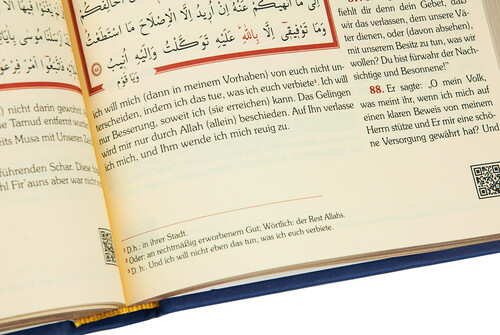 إِلَىٰ مَا أَنْهَىٰكُمْ عَنْهُ إِنْ أُرِيدُ إِلَّا الْإِصْلَاحَ مَا اسْتَطَعْتُ
وَمَا تَوْفِيقِي إِلَّا بِاللَّهِ عَلَيْهِ تَوَكَّلْتُ وَإِلَيْهِ أُنِيبُ
وَيَا قَوْمِ
nicht darin gewohnt
Tamud entfernt
Musa mit Unseren
führenden Schar. Diese
Fir'auns aber war nicht
Ich will mich (dann in meinem Vorhaben) von euch nicht un-
terscheiden, indem ich das tue, was ich euch verbiete³. Ich will
nur Besserung, soweit ich (sie erreichen) kann. Das Gelingen
wird mir nur durch Allah (allein) beschieden. Auf Ihn verlasse
ich mich, und Ihm wende ich mich reuig zu.
¹ D.h., in ihrer Stadt.
² Oder: an rechtmäßig erworbenem Gut; Wörtlich: der Rest Allahs.
³ D. h.: Und ich will nicht eben das tun, was ich euch verbiete.
fiehlt dir denn dein Gebet, daß
wir das verlassen, dem unsere Vä-
ter dienen, oder (davon absehen),
mit unserem Besitz zu tun, was wir
wollen? Du bist fürwahr der Nach-
sichtige und Besonnene!"
88. Er sagte: „O mein Volk,
was meint ihr, wenn ich mich auf
einen klaren Beweis von meinem
Herrn stütze und Er mir eine schö-
ne Versorgung gewährt hat? Und